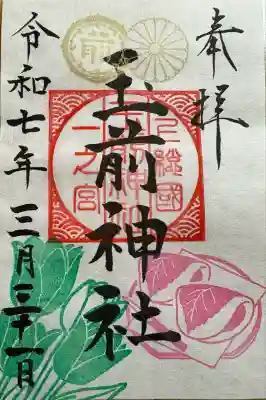 奉拝
上総國
玉前神社
一之宮
令和七年三月三十一日